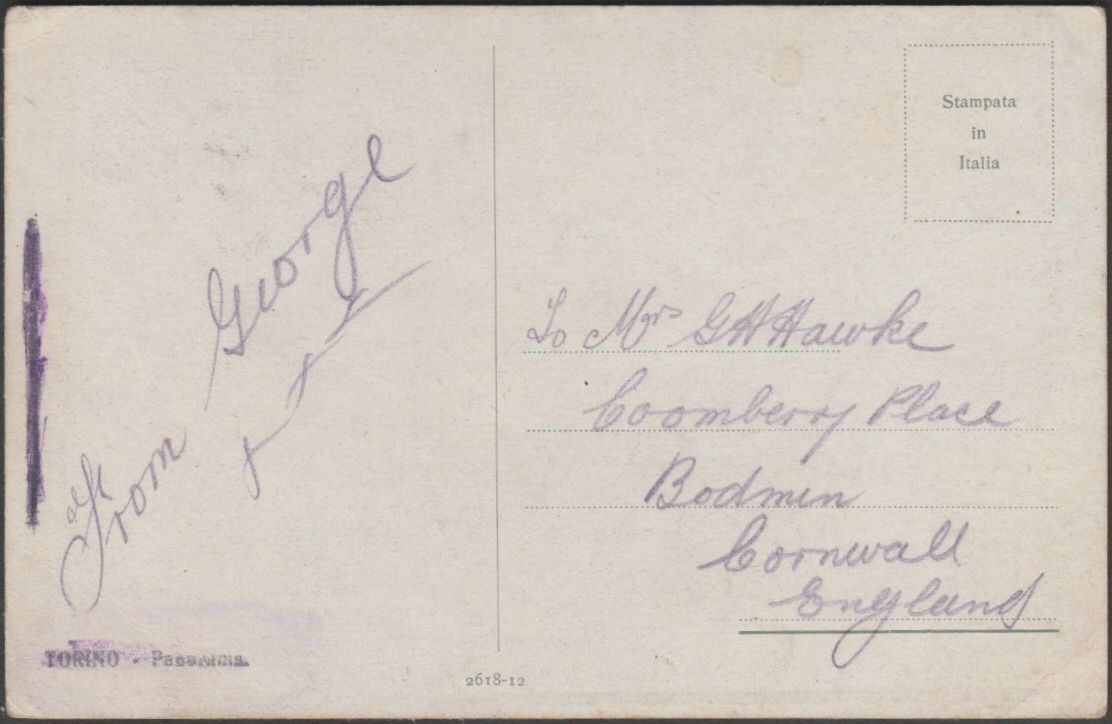 From George
Stampata
in
Italia
To Mrs G H Hawke
Coomberry Place
Bodmin
Cornwall
England
TORINO - Panorama.
2618-12